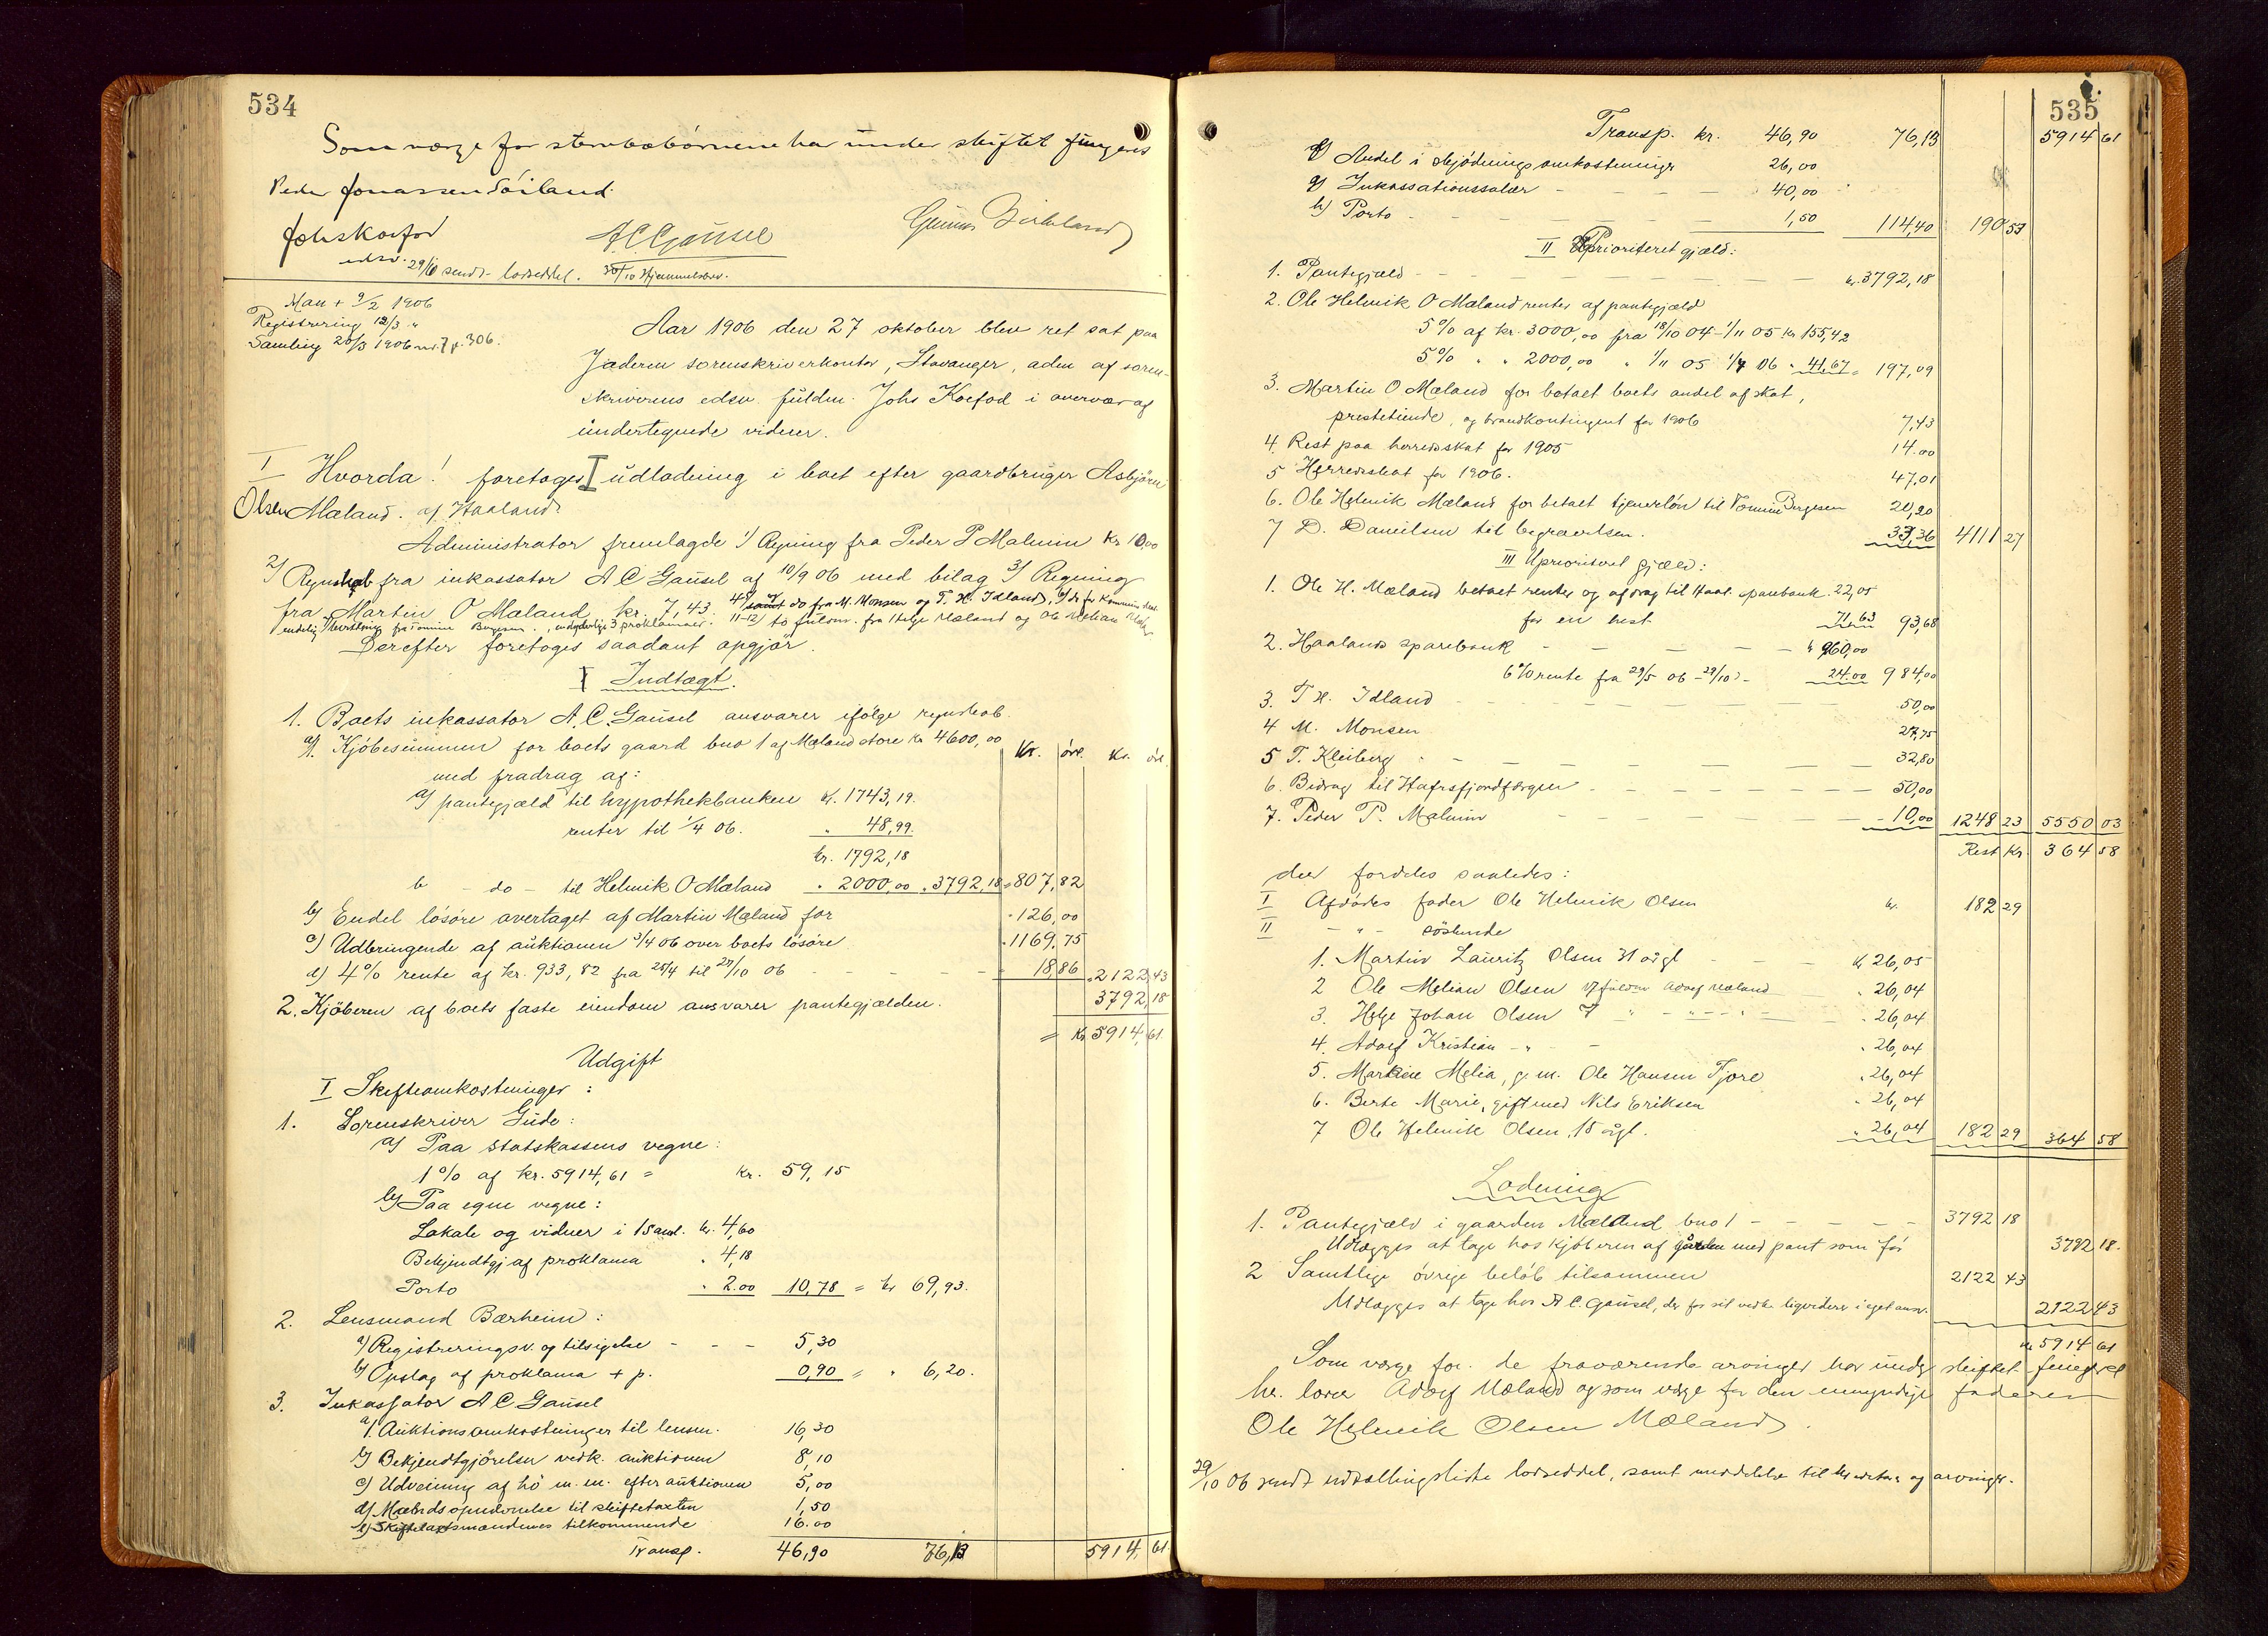 534
Som værge for stervbobørnene har under skiftet fungeret
Peder Jonassen Söiland.
Johs Koefod
edsv.
A C Gausel
Gunnar Birkeland
29/10 sendt lodseddel. 30/10 Hjemmelsbrev.
Man + 9/2 1906
Registrering 12/3 "
Samling 20/3 1906 no. 7 p. 306.
Aar 1906 den 27 oktober blev ret sat paa
Jæderen sorenskriverkontor, Stavanger, aden af soren-
skriverens edsv. fuldm. Johs Koefod i overvær af
undertegnede vidner.
I Hvorda! foretoges udlodning i boet efter gaardbruger Asbjörn
Olsen Mæland. af Haaland.
Administrator fremlagde 1) Regning fra Peder P Malmin kr 10,00
2) Regnskab fra inkassator A C Gausel af 10/9 06 med bilag 3) Regning
fra Martin O Mæland kr. 7,43. 4) samt do fra M. Monsen og T. H. Idland,
endelig bevitning fra Tomine Bergesen, 3 proklamaer. 11-12) to fuldm. fra Helge Mæland og Ole Melian
Derefter foretoges saadant opgjör.
I Indtægt.
1. Boets inkassator A. C. Gausel ansvarer ifölge regnskab.
a). Kjöbesummen for boets gaard bno 1 af Mæland store kr 4600,00
Kr. öre. Kr. öre.
med fradrag af:
a) pantegjæld til hypothekbanken kr. 1743,19.
renter til 1/4 06. " 48,99.
kr. 1792,18
b - do - til Helmik O Mæland " 2000,00 " 3792,18 = 807,82
b) Endel lösöre overtaget af Martin Mæland for " 126,00
c) Udbringende af auktionen 3/4 06 over boets lösöre " 1169,75
d) 4% rente af kr. 933,82 fra 25/4 til 27/10 06 - - - - 18,86 " 2122,43
2. Kjöberen af boets faste eiendom ansvarer pantegjælden. 3792,18
= Kr 5914,61.
Udgift
I Skifteomkostninger:
1. Sorenskriver Gude:
a) Paa statskassens vegne:
1% af kr. 5914,61 = kr. 59,15
b) Paa egne vegne:
Lokale og vidner i 1 saml. kr. 4,60
Bekjendtgj af proklama " 4,18
Porto " 2.00 10,78 = kr 69,93.
2. Lensmand Bærheim:
a) Registreringsv. og tilsigelse - - - 5,30
b) Opslag af proklama + p. 0,90 = " 6,20.
3. Inkassator A C Gausel
a). Auktionsomkostninger til lensm. 16,30
b) Bekjendtgjörelser vedk. auktionen 8,10
c) Udveining af hö m. m. efter auktionen 5,00
d) Mælands opnævnelse til skiftetaxten 1,50
e) Skiftetaxtsmændenes tilkommende 16.00
Transp. 46,90 76,13 5914,61.
535
Transp. kr. 46,90 76,13 5914 61
f) Andel i skjödningsomkostninger 26,00
g) Inkassationssalær - - - - 40,00
h) Porto - - - - - 1,50 114,40 190 53
II Prioriteret gjæld:
1. Pantegjæld - - - - kr. 3792,18
2. Ole Helmik O Mæland renter af pantegjæld
5% af kr. 3000,00 fra 18/10 04 - 1/11 05 kr 155,42
5% " " 2000,00 " 1/11 05 1/4 06 " 41,67 = 197,09
3. Martin O Mæland for betalt boets andel af skat,
prestetiende, og brandkontingent for 1906 7,43
4. Rest paa herredsskat for 1905 14.00
5 Herredsskat for 1906. 47,01
6. Ole Helmik Mæland for betalt tjenerlön til Tomine Bergesen 20,20
7 D. Danielsen til begravelsen. 33,36 4111 27
III Uprioriteret gjæld:
1. Ole H. Mæland betalt renter og afdrag til Haal. sparebank. 22,05
for en hest. 71,63 93,68
2. Haaland sparebank - - - - - " 960,00
6% rente fra 29/5 06 - 29/10 - 24.00 984,00
3. T H. Idland 50,00
4 M. Monsen 27,75
5 T. Kleiberg 32,80
6. Bidrag til Hafrsfjordfærgen 50,00
7. Peder P. Malmin - 10,00 1248 23 5550 03
Rest Kr. 364 58
der fordeles saaledes:
I Afdödes fader Ole Helmik Olsen kr. 182 29
II - " - söskende
1. Martin Lauritz Olsen Kr 26,05
2 Ole Melian Olsen v/ fuldm Adolf Mæland " 26,04
3. Helge Johan Olsen " 26,04
4. Adolf Kristian " 26,04
5. Martine Melia, g. m. Ole Hansen Tjore " 26,04
6. Berte Marie, gift med Nils Eriksen " 26,04
7 Ole Helmik Olsen, 15 ågl. " 26,04 182 29 364 58
Lodning
1. Pantegjæld i gaarden Mæland bno 1 - - - - - 3792 18
Udlægges at tage hos kjöberen af gården med pant som för 3792 18.
2 Samtlige övrige belöb tilsammen 2122 43
Udlægges at tage hos A C. Gausel, der for sit vedk. ligviderer i eget ansv. 2122 43
kr 5914 61
Som værge for de fraværende arvinger har under skiftet fungeret
hr. lærer Adolf Mæland og som værge for den umyndige faderen
Ole Helmik Olsen Mæland.
29/10 06 sendt udtallingsliste lodseddel, samt meddelelse til kreditorer og arvinger.